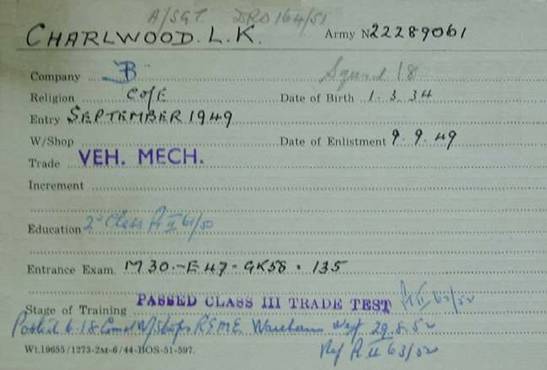 A/SGT DRO 164/51
CHARLWOOD. L. K. Army No 22289061
Company B Squad 18
Religion C of E Date of Birth 1. 3. 34
Entry SEPTEMBER 1949
W/Shop Date of Enlistment 9. 9. 49
Trade VEH. MECH.
Increment
Education 2nd Class
Entrance Exam. M 30.-E 47-GK58 . 135
Stage of Training PASSED CLASS III TRADE TEST
Posted to 18 Comd W/Shops REME Wareham 29.8.52
Wt.19655/1273-2M-6/44-BOS-51-597. Ref P II 63/52